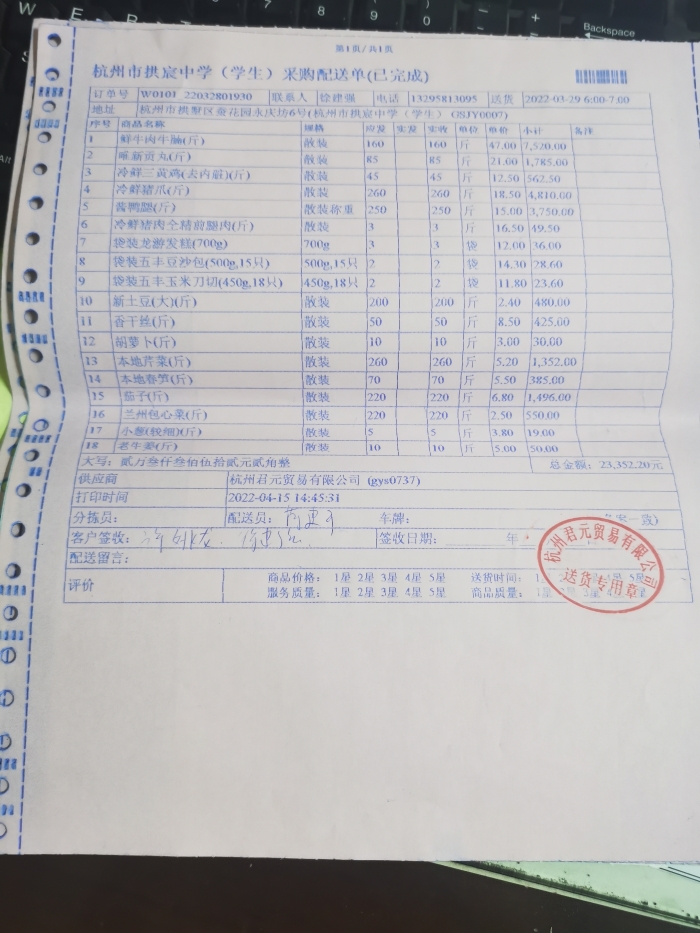 第1页/共1页
杭州市拱宸中学（学生）采购配送单(已完成)
订单号 W0101 22032801930 联系人 徐建强 电话 13295813095 送货 2022-03-29 6:00-7:00
地址 杭州市拱墅区蚕花园永庆坊6号(杭州市拱宸中学（学生） GSJY0007)
序号 商品名称 规格 应发 实发 实收 单位 单价 小计 备注
1 鲜牛肉牛腩(斤) 散装 160 160 斤 47.00 7,520.00
2 唯新贡丸(斤) 散装 85 85 斤 21.00 1,785.00
3 冷鲜三黄鸡(去内脏)(斤) 散装 45 45 斤 12.50 562.50
4 冷鲜猪爪(斤) 散装 260 260 斤 18.50 4,810.00
5 酱鸭腿(斤) 散装称重 250 250 斤 15.00 3,750.00
6 冷鲜猪肉全精前腿肉(斤) 散装 3 3 斤 16.50 49.50
7 袋装龙游发糕(700g) 700g 3 3 袋 12.00 36.00
8 袋装五丰豆沙包(500g,15只) 500g,15只 2 2 袋 14.30 28.60
9 袋装五丰玉米刀切(450g,18只) 450g,18只 2 2 袋 11.80 23.60
10 新土豆(大)(斤) 散装 200 200 斤 2.40 480.00
11 香干丝(斤) 散装 50 50 斤 8.50 425.00
12 胡萝卜(斤) 散装 10 10 斤 3.00 30.00
13 本地芹菜(斤) 散装 260 260 斤 5.20 1,352.00
14 本地春笋(斤) 散装 70 70 斤 5.50 385.00
15 茄子(斤) 散装 220 220 斤 6.80 1,496.00
16 兰州包心菜(斤) 散装 220 220 斤 2.50 550.00
17 小葱(较细)(斤) 散装 5 5 斤 3.80 19.00
18 老生姜(斤) 散装 10 10 斤 5.00 50.00
大写：贰万叁仟叁佰伍拾贰元贰角整 总金额：23,352.20元
供应商 杭州君元贸易有限公司 (gys0737)
打印时间 2022-04-15 14:45:31
分拣员： 配送员： 车牌：
客户签收： 签收日期： 年
配送留言：
评价 商品价格： 1星 2星 3星 4星 5星 送货时间： 1星 5星
服务质量： 1星 2星 3星 4星 5星 商品质量： 1星 2星 3星 4星 5星
杭州君元贸易有限公司
送货专用章
Backspace
Alt